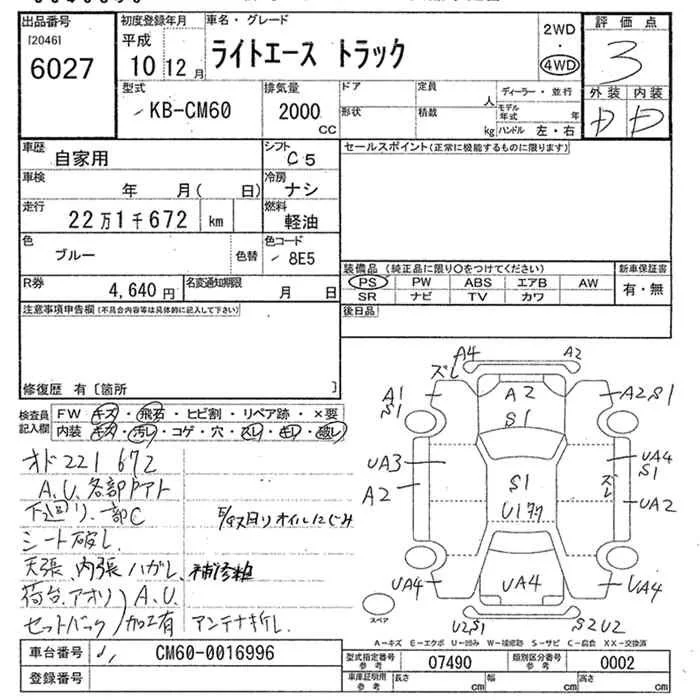 出品番号
[2046]
6027
初度登録年月
平成
10 12月
車名・グレード
ライトエース トラック
2WD
・
4WD
評価点
3
外装 内装
D D
型式
KB-CM60
排気量
2000
CC
ドア
定員
人
ディーラー・並行
形状
積載
kg
モデル年式
年
ハンドル 左・右
車歴
自家用
シフト
C5
セールスポイント(正常に機能するものに限ります)
車検
年 月( 日)
冷房
ナシ
走行
22万1千672 km
燃料
軽油
色
ブルー
色替
色コード
8E5
装備品 (純正品に限り○をつけてください)
新車保証書
PS PW ABS エアB AW
有・無
SR ナビ TV カワ
R券
4,640円
名変通知期限
月 日
後日品
注意事項申告欄(不具合内容等は具体的に記入して下さい)
修復歴 有〔箇所 〕
検査員記入欄
FW キズ・飛石・ヒビ割・リペア跡・×要
内装 キズ・汚レ・コゲ・穴・スレ・キレ・破レ
オド221672
A.U.各部
下廻り、一部C
シート破レ
天張、内張ハガレ、補修粗
荷台、アオリ A.U.
セットバック 加工有 アンテナ折レ
A4 A2
ズレ
A1 S1
A2
S1
A2 S1
UA3
A2
S1
UA4 S1
ズレ
UA2
UA4
UA4
UA4
U2S1
S2U2
スペア
A-キズ E-エクボ U-凹み W-補修跡 S-サビ C-腐食 XX-交換済
車台番号
CM60-0016996
型式指定番号
参考
07490
類別区分番号
参考
0002
登録番号
車庫証明用
参考
長さ cm
幅 cm
高さ cm